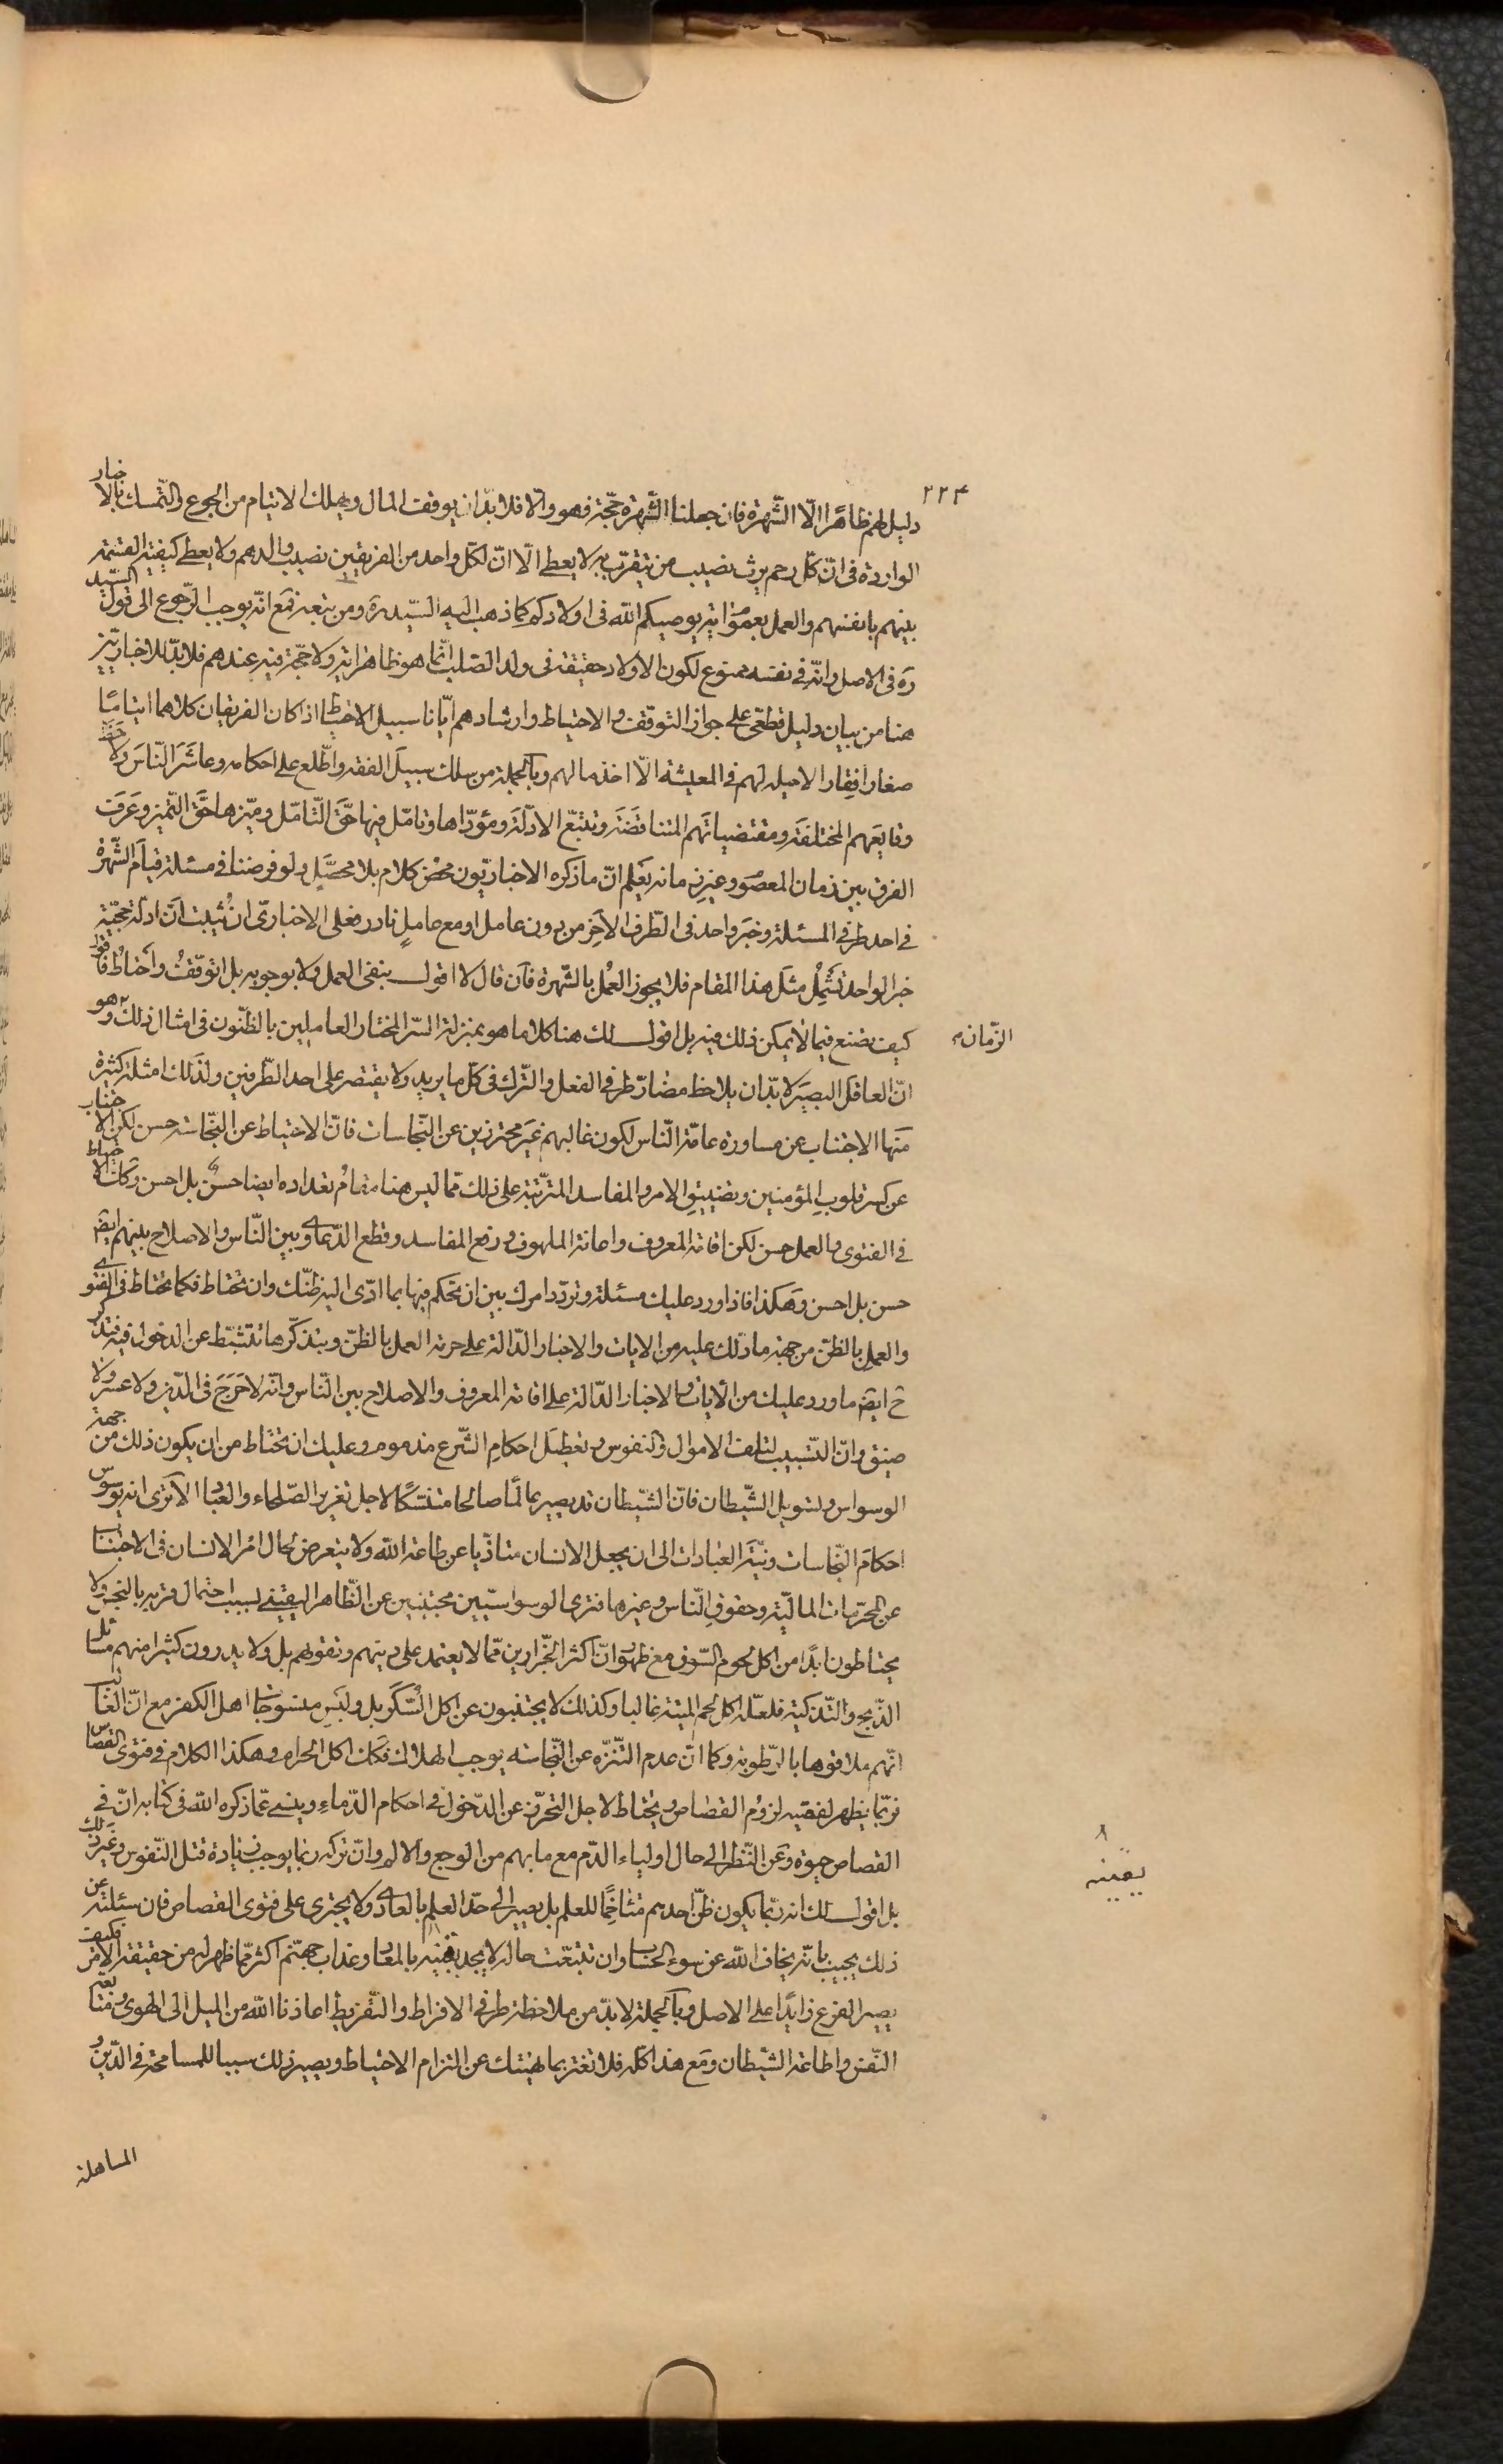 ٢٢٤
دليل لهم ظاهرا الّا الشّهرة فان جعلنا الشّهرة حجّة فهو والّا فلا بدّ ان يوقف المال ويهلك الايتام من الجوع والتّمسك بالاخبار
الواردة فى انّ كلّ رحم يرث نصيب من يتقرّب به لا يعطى الّا انّ لكلّ واحد من الفريقين نصيب والدهم ولا يعطى كيفيّة القسمة
بينهم بانفسهم والعمل بعموم اية يوصيكم الله فى اولادكم كما ذهب اليه السّيد ره ومن تبعه فمع انّه يوجب الرّجوع الى قول السّيد
ره فى الاصل وانّه فى نفسه ممنوع لكون الاولاد حقيقة فى ولد الصّلب انّما هو ظاهر اية ولا حجّة فيه عندهم فلا بدّ للاخباريّين
هنا من بيان دليل قطعى على جواز التوقف والاحتياط وارشادهم ايّانا سبيل الاحتياط اذا كان الفريقان كلاهما ايتامًا
صغارا فقارا لا حيلة لهم فى المعيشة الّا اخذ مالهم وبالجملة من سلك سبيل الفقه واطّلع على احكامه وعاشر النّاس ولاحظ
وقايعهم المختلفة ومقتضياتهم المتناقضة وتتبّع الادلّة ومؤدّاها وتامّل فيها حقّ التّامّل وميّزها حقّ التّميز وعرف
الفرق بين زمان المعصوم وغيره مانه يعلم انّ ما ذكره الاخباريّون محض كلام بلا محصّل ولو فرضنا فى مسئلة قيام الشّهرة
فى احد طرفى المسئلة وخبر واحد فى الطّرف الآخر من دون عامل او مع عامل نادر فعلى الاخبارىّ ان يثبت انّ ادلّة حجّيّة
خبر الواحد تشمل مثل هذا المقام فلا يجوز العمل بالشّهرة فان قال لا اقول بنفى العمل ولا بوجوبه بل اتوقّف واحتاط فاقول
كيف تصنع فيما لا يمكن ذلك فيه بل اقول لك هنا كلاما هو بمنزلة السّر المختار العاملين بالظّنون فى امثال ذلك وهو
الزّمان
انّ العاقل البصير لا بدّ ان يلاحظ مضارّ طرفى الفعل والتّرك فى كلّ ما يريد ولا يقتصر على احد الطّرفين ولذلك امثلة كثيرة
منها الاجتناب عن مساورة عامّة النّاس لكون غالبهم غير محترزين عن النّجاسات فانّ الاحتياط عن النّجاسة حسن لكن الاجتناب
عن كسر قلوب المؤمنين وتضييق الامر والمفاسد المترتّبة على ذلك ممّا ليس هنا مقام تعداده ايضا حسن بل احسن وكذا الاحتياط
فى الفتوى والعمل حسن لكن اقامة المعروف واعانة الملهوف ورفع المفاسد وقطع الدّعاوى بين النّاس والاصلاح بينهم ايضا
حسن بل احسن وهكذا فاذا ورد عليك مسئلة وتردّد امرك بين ان تحكم فيها بما ادّى اليه ظنّك وان تحتاط فكما تحتاط فى الفتوى
والعمل بالظّن من جهة ما دلّك عليه من الايات والاخبار الدّالة على حرمة العمل بالظّن وبتذكّرها تتثبّط عن الدخول فيه فتذكّر
ح ايضا ما ورد عليك من الآيات والاخبار الدّالة على اقامة المعروف والاصلاح بين النّاس وانّه لا حرج فى الدّين ولا عسر ولا
ضيق وانّ التسبيب لتلف الاموال والنفوس وتعطيل احكام الشّرع مذموم وعليك ان تحتاط من ان يكون ذلك من جهة
الوسواس وتسويل الشّيطان فانّ الشّيطان قد يصير عالمًا صالحا متنسّكًا لاجل تغرير الصّلحاء والعباد الا ترى انه يوسوس
احكام النّجاسات ونيّة العبادات الى ان يجعل الانسان متاذّيا عن طاعة الله ولا يتعرض لحال امر الانسان فى الاجتناب
عن المحرّمات الماليّة وحقوق النّاس وغيرها فترى الوسواسيّين مجتنبين عن الظّاهر اليقينى بسبب احتمال قربه بالنجس ولا
يحتاطون ابدًا من اكل لحوم السّوق مع ظهور انّ اكثر الجزّارين ممّا لا يعتمد على دينهم وتقوهم بل ولا يدرون كثيرا منهم مسائل
الذّبح والتّذكية فلعلّه اكل لحم الميتة غالبا وكذلك لا يجتنبون عن اكل السّكر بل ولبس منسوجات اهل الكفر مع انّ الغالب
انّهم ملاقوها بالرّطوبة وكما انّ عدم التّنزّه عن النّجاسة يوجب الهلاك فكذا اكل الحرام وهكذا الكلام فى فتوى القصاص
فربّما يظهر لفقيه لزوم القصاص ويحتاط لاجل التحرّز عن الدّخول فى احكام الدّماء وينسى عمّا ذكره الله فى كتابه انّ فى
القصاص حيوة وعن النّظر الى حال اولياء الدّم مع ما بهم من الوجع والالم وانّ تركه ربّما يوجب زيادة قتل النّفوس وغير ذلك
بل اقول لك انه ربّما يكون ظنّ احدهم متاخمًا للعلم بل يصير الى حدّ العلم بالعادى ولا يجترى على فتوى القصاص فان سئلته عن
ذلك يجيب بانّه يخاف الله عن سوء الحساب وان تتبّعت حاله لا يجد يقينه بالمعاد وعذاب جهنّم اكثر ممّا ظهر له من حقيقة الامر فكيف
يقينه
يصير الفرع زايدًا على الاصل وبالجملة لا بدّ من ملاحظة طرفى الافراط والتّفريط اعاذنا الله من الميل الى الهوى ومتابعة
النّفس واطاعة الشّيطان ومع هذا كلّه فلا تغترّ بما نبّهتك عن التزام الاحتياط ويصير ذلك سببا للمسامحة فى الدّين و
المساهلة